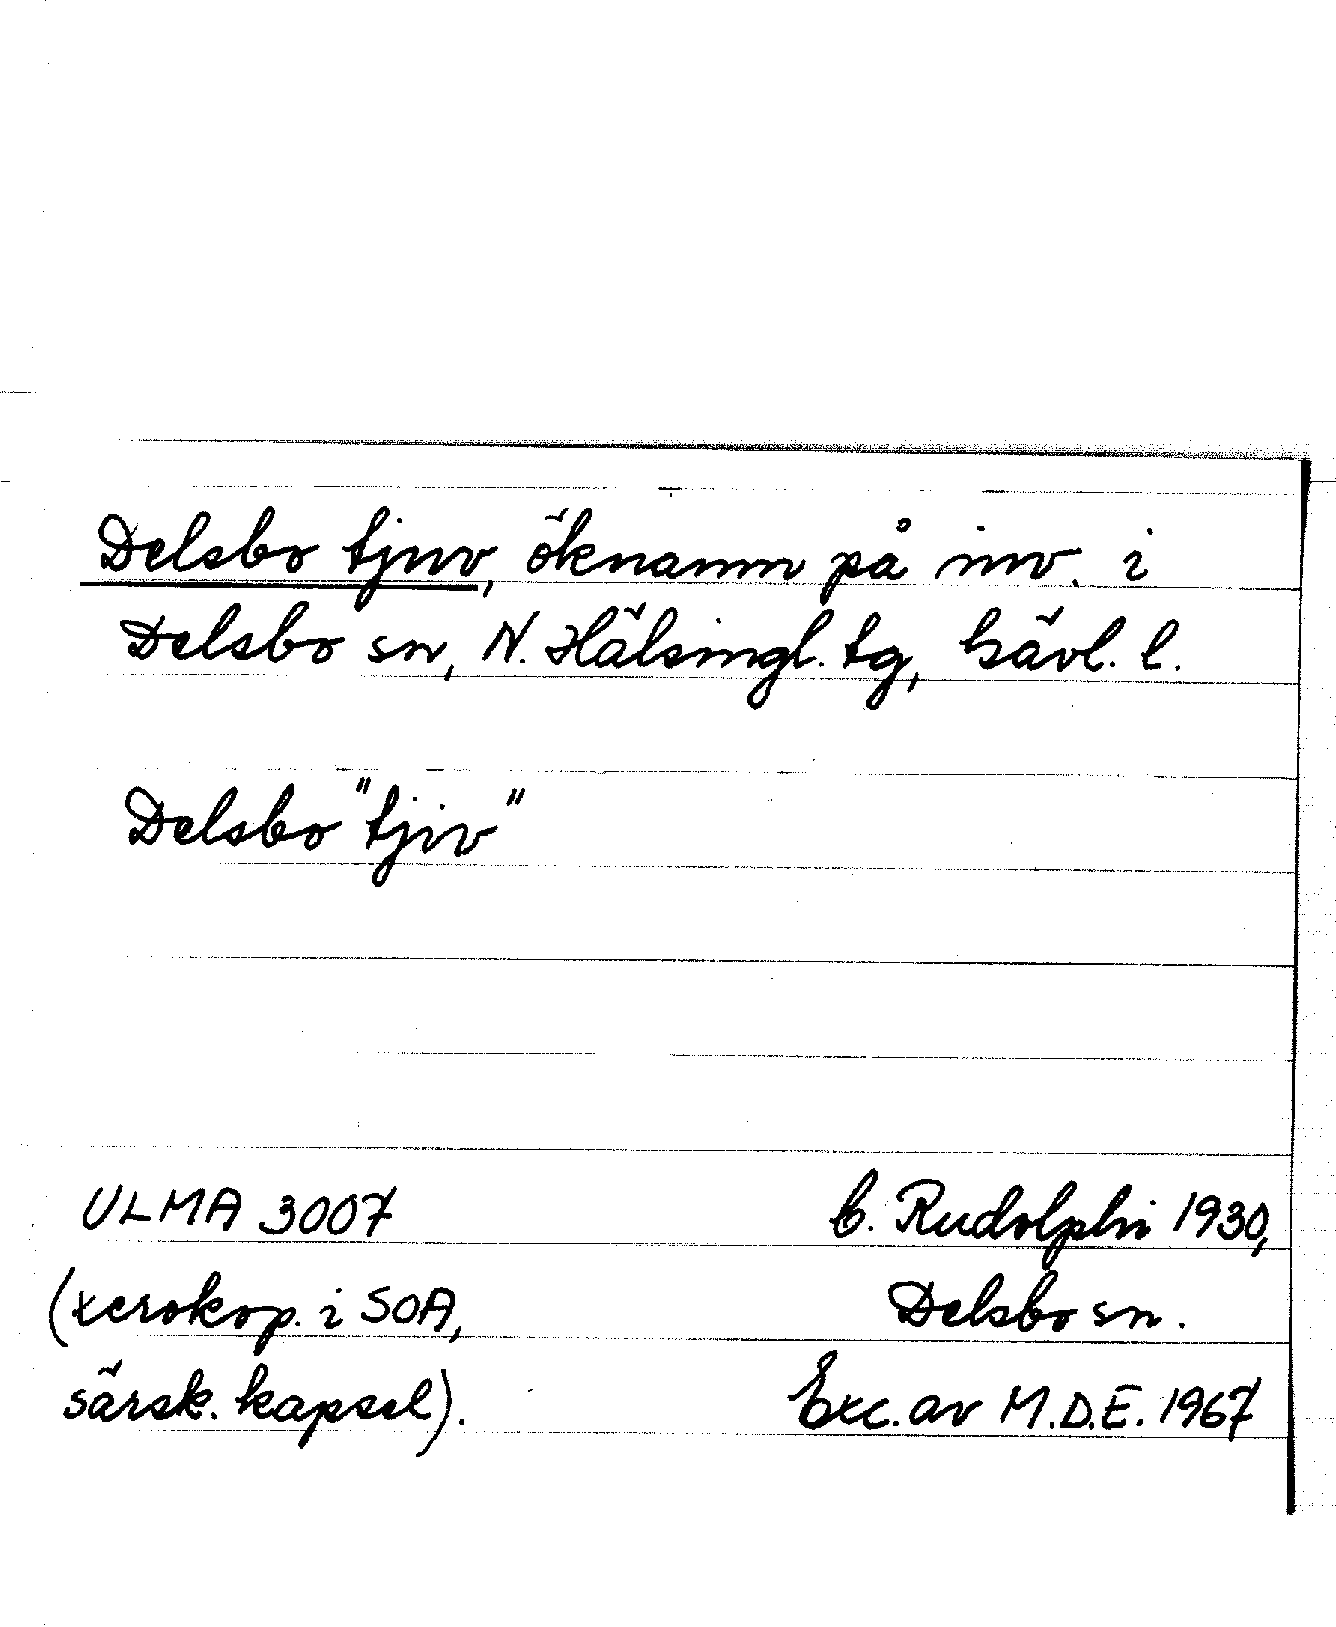 Delsbo tjuv, öknamn på inv. i
Delsbo sn, N. Hälsingl. tg, Gävl. l.
Delsbo "tjiv"
ULMA 3007
G. Rudolphi 1930,
(xerokop. i SOA,
Delsbo sn.
särsk. kapsel).
Exc. av M.D.E. 1967